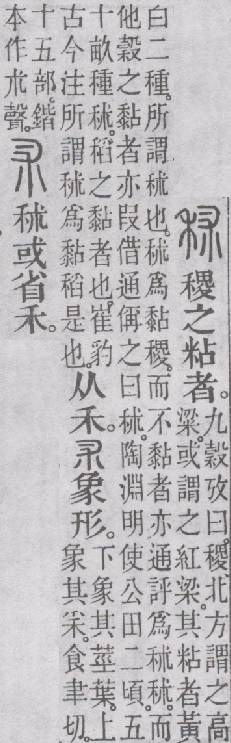 秫稷之粘者。
九穀攷曰。稷。北方謂之高
粱。或謂之紅粱。其粘者黃
白二種。所謂秫也。秫爲黏稷。而不黏者亦通評爲秫秫。而
他穀之黏者亦叚借通偁之曰秫。陶淵明使公田二頃五
十畝種秫。稻之黏者也。崔豹
古今注所謂秫爲黏稻是也。
从禾。朮象形。
下象其莖葉。上
象其采。食聿切。
十五部。鍇
本作朮聲。
朮秫或省禾。